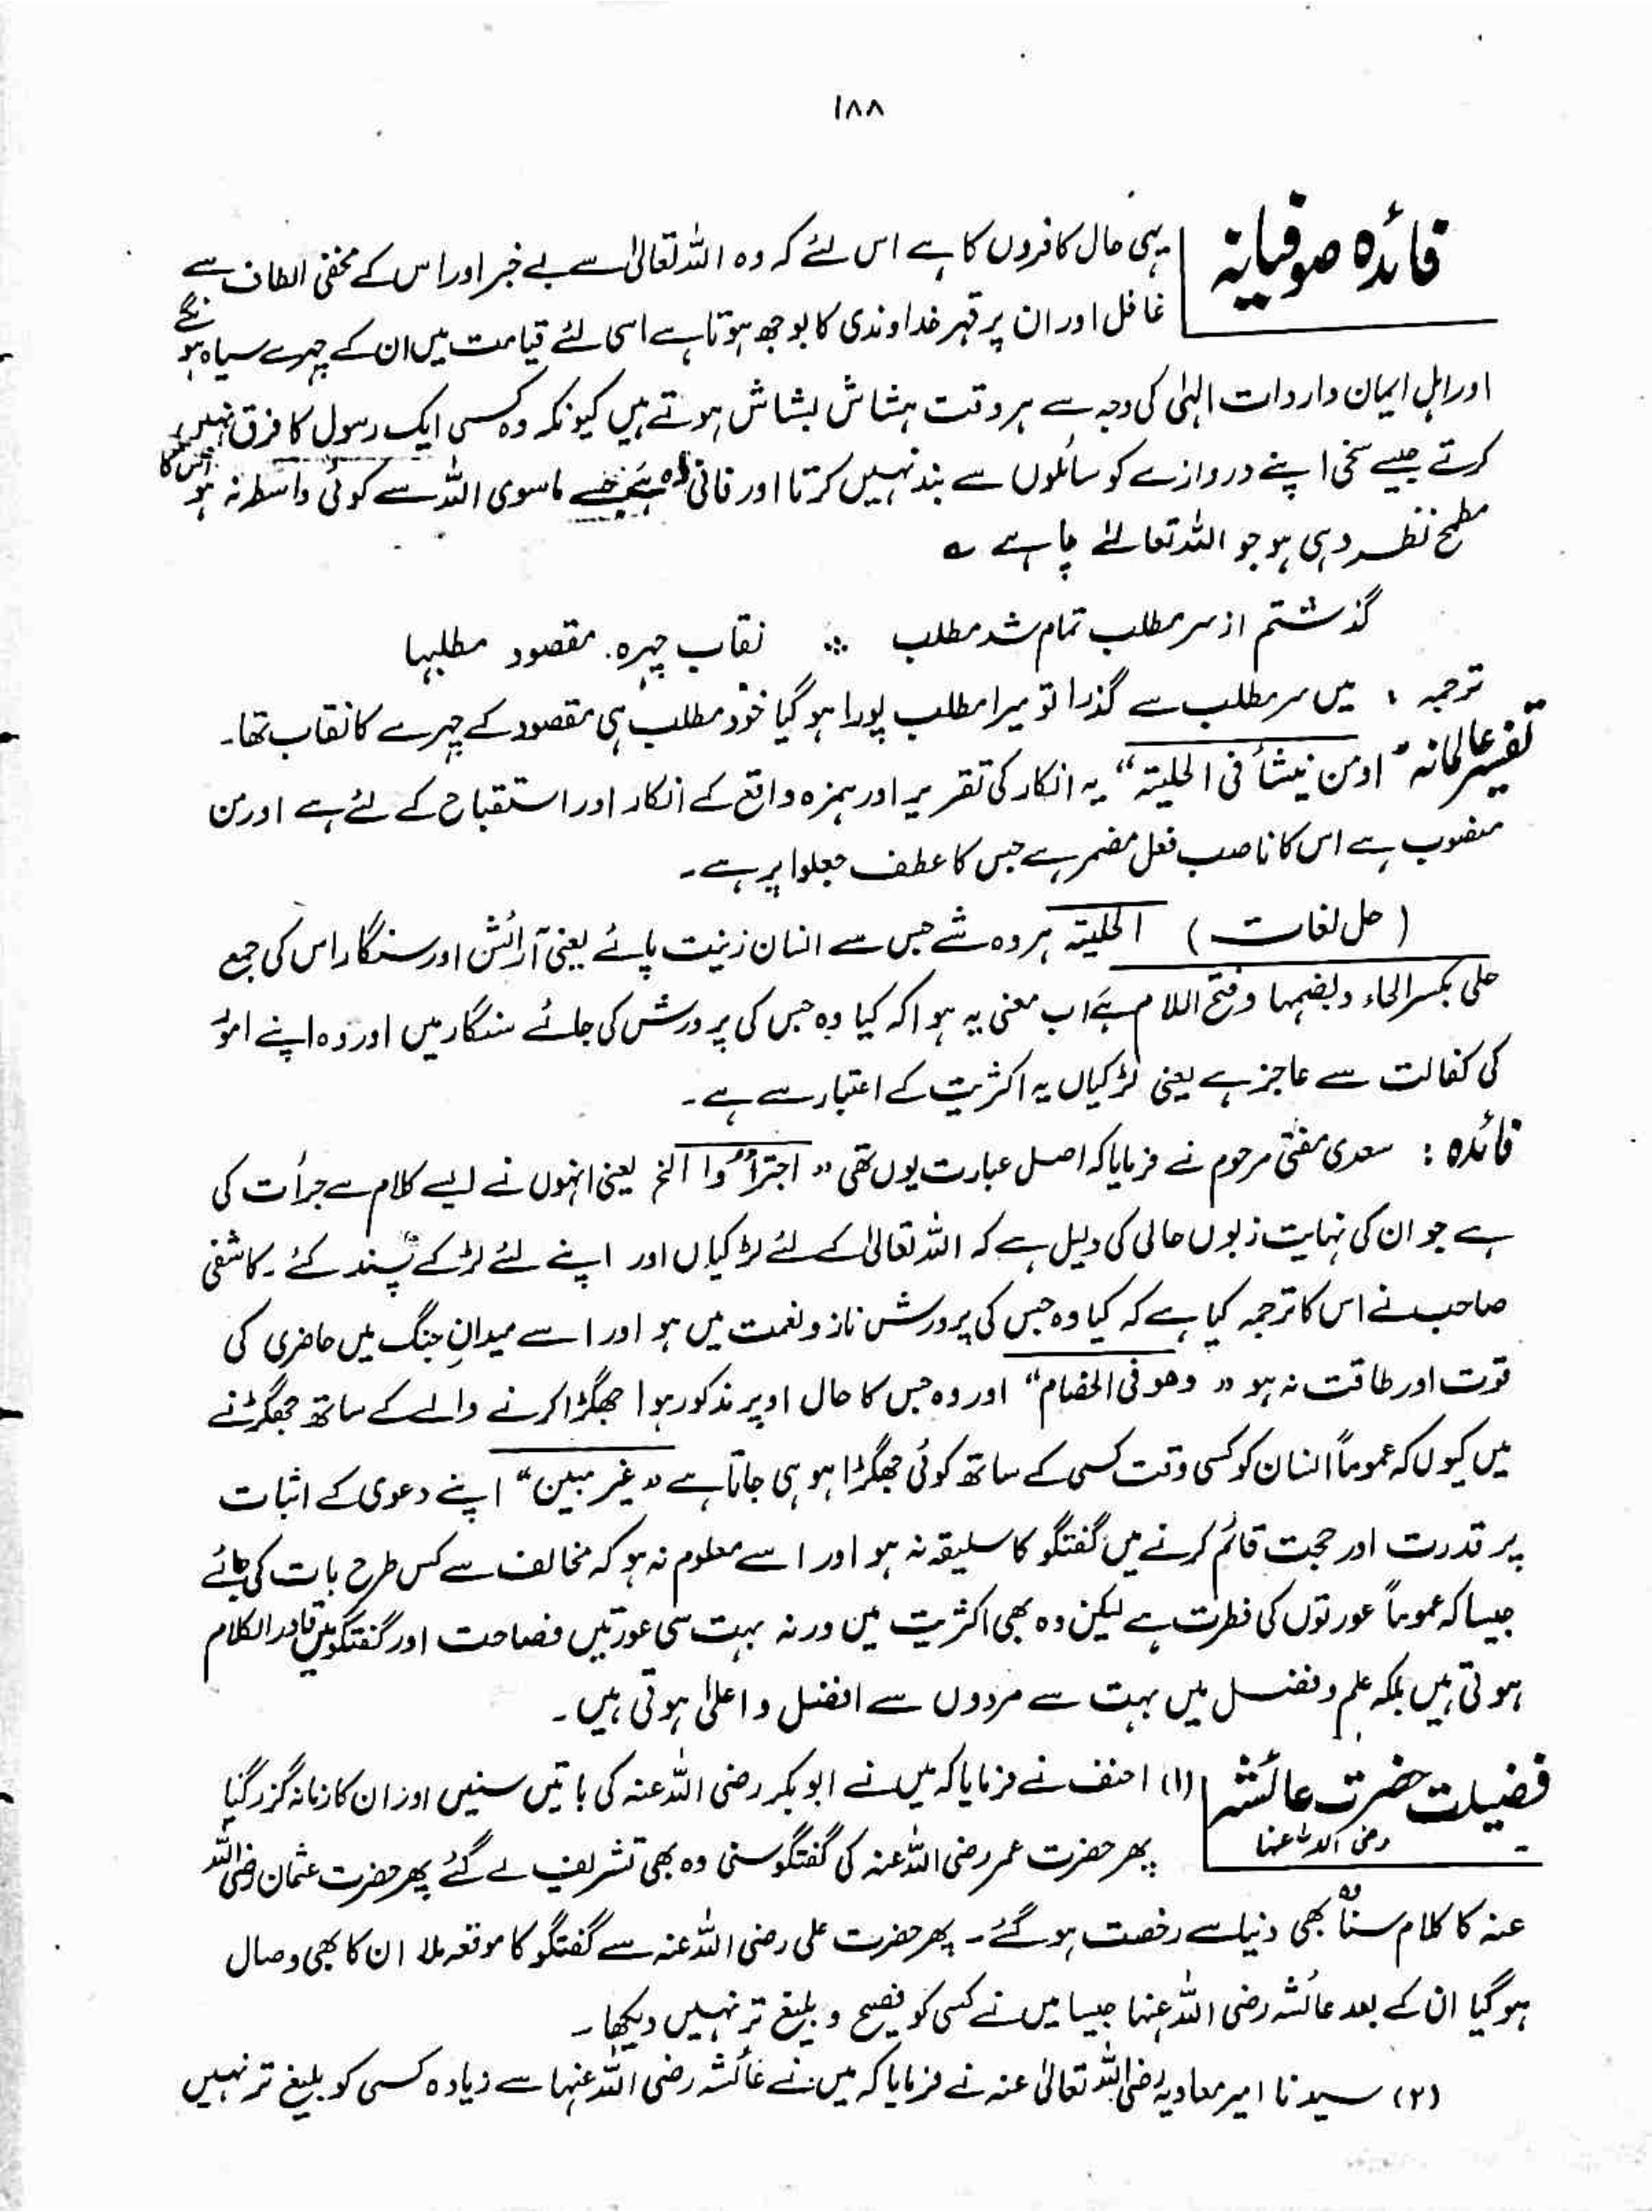 ۱۸۸
فائدہ صوفیانہ
یہی حال کافروں کا ہے اس لئے کہ وہ اللہ تعالیٰ سے بے خبر اور اس کے مخفی الطاف سے
غافل اور ان پر قہر خداوندی کا بوجھ ہوتا ہے اسی لئے قیامت میں ان کے چہرے سیاہ ہونگے
اور اہل ایمان واردات الہٰی کی وجہ سے ہر وقت ہشاش بشاش ہوتے ہیں کیونکہ وہ کسی ایک رسول کا فرق نہیں
کرتے جیسے سخی اپنے دروازے کو سائلوں سے بند نہیں کرتا اور فانی وہ ہے جسے ماسوی اللہ سے کوئی واسطہ نہ ہو اس کا
مطمح نظر وہی ہو جو اللہ تعالےٰ چاہے ؎
گذشتم از سر مطلب تمام شد مطلب ؞ نقاب چہرہ مقصود مطلبہا
ترجمہ : میں سر مطلب سے گذرا تو میرا مطلب پورا ہو گیا خود مطلب ہی مقصود کے چہرے کا نقاب تھا۔
تفسیر عالمانہ " اومن ینشأ فی الحلیتہ " یہ انکار کی تقریر اور ہمزہ واقع کے انکار اور استقباح کے لئے ہے اور من
منصوب ہے اس کا ناصب فعل مضمر ہے جس کا عطف جعلوا پر ہے۔
( حل لغات ) الحلیتہ ہر وہ شے جس سے انسان زینت پائے یعنی آرائش اور سنگار اس کی جمع
حلی بکسر الحاء وبضمہا وفتح اللام ہے اب معنی یہ ہوا کہ کیا وہ جس کی پرورش کی جائے سنگار میں اور وہ اپنے امور
کی کفالت سے عاجز ہے یعنی لڑکیاں یہ اکثریت کے اعتبار سے ہے۔
فائدہ : سعدی مفتی مرحوم نے فرمایا کہ اصل عبارت یوں تھی " اجترأوا الخ یعنی انہوں نے ایسے کلام سے جرأت کی
ہے جو ان کی نہایت زبوں حالی کی دلیل ہے کہ اللہ تعالیٰ کے لئے لڑکیاں اور اپنے لئے لڑکے پسند کئے ۔ کاشفی
صاحب نے اس کا ترجمہ کیا ہے کہ کیا وہ جس کی پرورش ناز و نعمت میں ہو اور اسے میدانِ جنگ میں حاضری کی
قوت اور طاقت نہ ہو " وھو فی الخصام " اور وہ جس کا حال اوپر مذکور ہوا جھگڑا کرنے والے کے ساتھ جھگڑنے
میں کیوں کہ عموماً انسان کو کسی وقت کسی کے ساتھ کوئی جھگڑا ہو ہی جاتا ہے " غیر مبین " اپنے دعوی کے اثبات
پر قدرت اور حجت قائم کرنے میں گفتگو کا سلیقہ نہ ہو اور اسے معلوم نہ ہو کہ مخالف سے کس طرح بات کی جائے
جیسا کہ عموماً عورتوں کی فطرت ہے لیکن وہ بھی اکثریت میں ورنہ بہت سی عورتیں فصاحت اور گفتگو میں قادر الکلام
ہوتی ہیں بلکہ علم و فضل میں بہت سے مردوں سے افضل و اعلیٰ ہوتی ہیں ۔
فضیلت حضرت عائشہ رضی اللہ عنہا
(۱) احنف نے فرمایا کہ میں نے ابوبکر رضی اللہ عنہ کی باتیں سنیں اور ان کا زمانہ گزر گیا
پھر حضرت عمر رضی اللہ عنہ کی گفتگو سنی وہ بھی تشریف لے گئے پھر حضرت عثمان رضی اللہ
عنہ کا کلام سنا وہ بھی دنیا سے رخصت ہو گئے ۔ پھر حضرت علی رضی اللہ عنہ سے گفتگو کا موقعہ ملا ان کا بھی وصال
ہو گیا ان کے بعد عائشہ رضی اللہ عنہا جیسا میں نے کسی کو فصیح و بلیغ تر نہیں دیکھا۔
(۲) سیدنا امیر معاویہ رضی اللہ تعالیٰ عنہ نے فرمایا کہ میں نے عائشہ رضی اللہ عنہا سے زیادہ کسی کو بلیغ تر نہیں